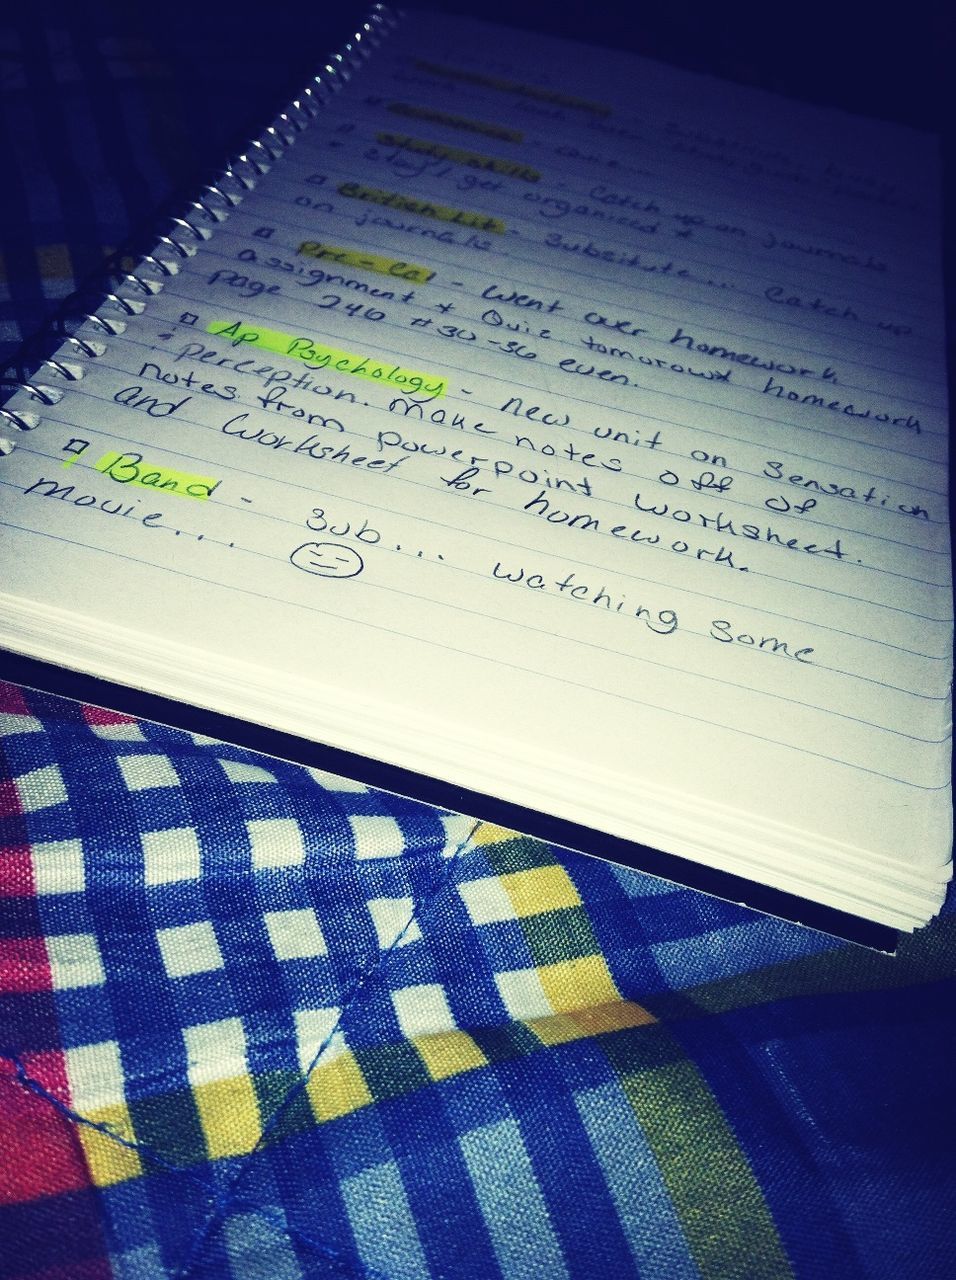 □ Economics -
□ Study Skills - Catch up on journals
* stay / get organized *
□ British Lit - Substitute... Catch up
on journals.
□ Pre-Cal - Went over homework
assignment * Quiz tomorow * homework
page 240 #30-36 even.
□ Ap Psychology - New unit on Sensation
: perception. Make notes off of
notes from powerpoint worksheet.
and worksheet for homework.
□ Band - Sub... watching some
movie...